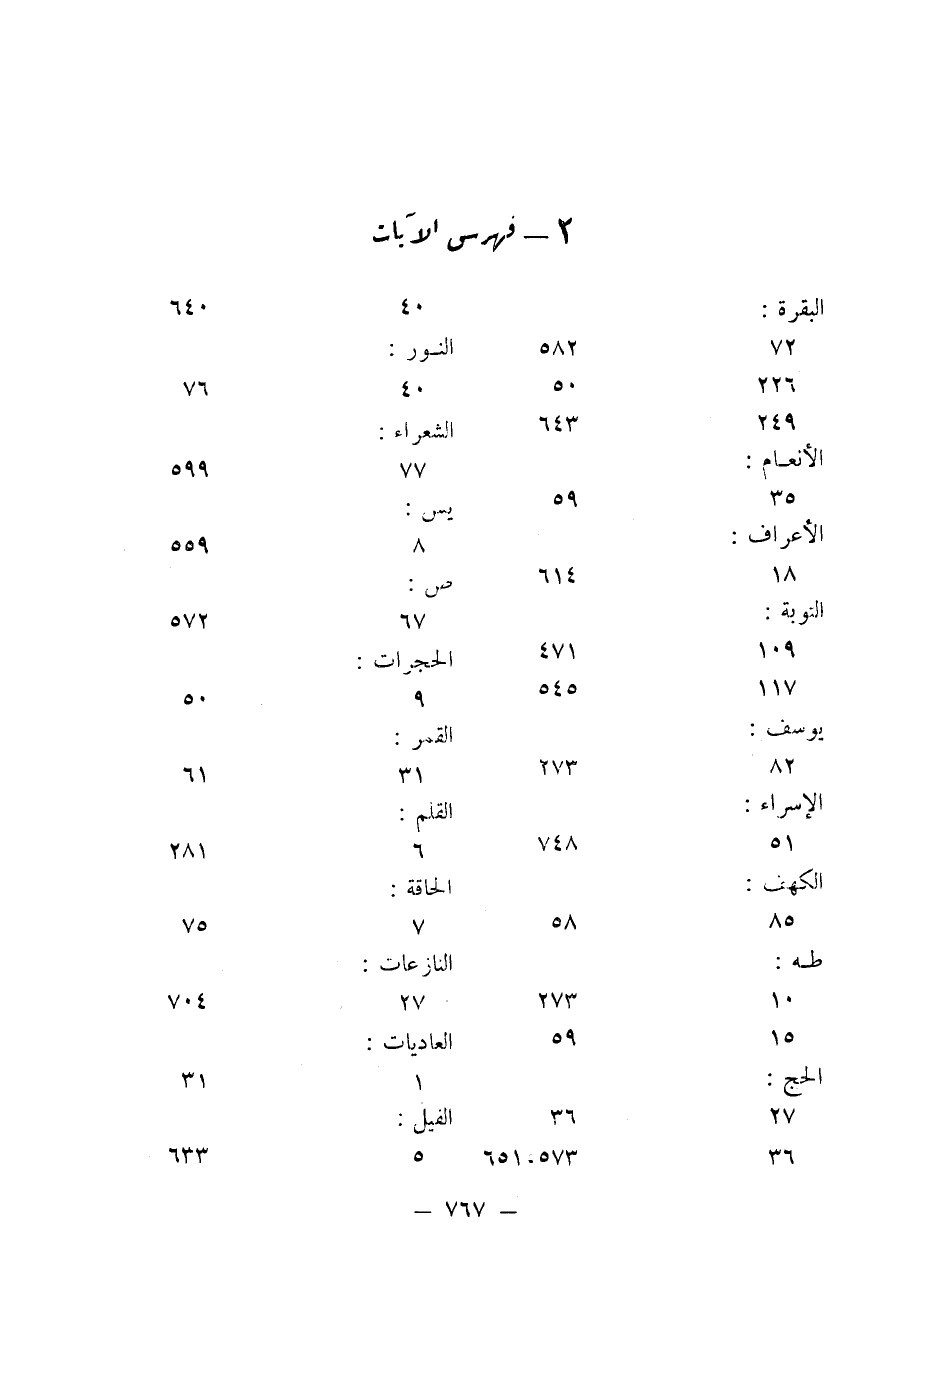 ٢ — فهرس الآيات
البقرة :
٧٢ ٥٨٢
٢٢٦ ٥٠
٢٤٩ ٦٤٣
الأنعـام :
٣٥ ٥٩
الأعراف :
١٨ ٦١٤
التوبة :
١٠٩ ٤٧١
١١٧ ٥٤٥
يوسف :
٨٢ ٢٧٣
الإسراء :
٥١ ٧٤٨
الكهف :
٨٥ ٥٨
طـه :
١٠ ٢٧٣
١٥ ٥٩
الحج :
٢٧ ٣٦
٣٦ ٥٧٣،٦٥١
٤٠ ٦٤٠
النـور :
٤٠ ٧٦
الشعراء :
٧٧ ٥٩٩
يس :
٨ ٥٥٩
ص :
٦٧ ٥٧٢
الحجرات :
٩ ٥٠
القمر :
٣١ ٦١
القلم :
٦ ٢٨١
الحاقة :
٧ ٧٥
النازعات :
٢٧ ٧٠٤
العاديات :
١ ٣١
الفيل :
٥ ٦٣٣
— ٧٦٧ —